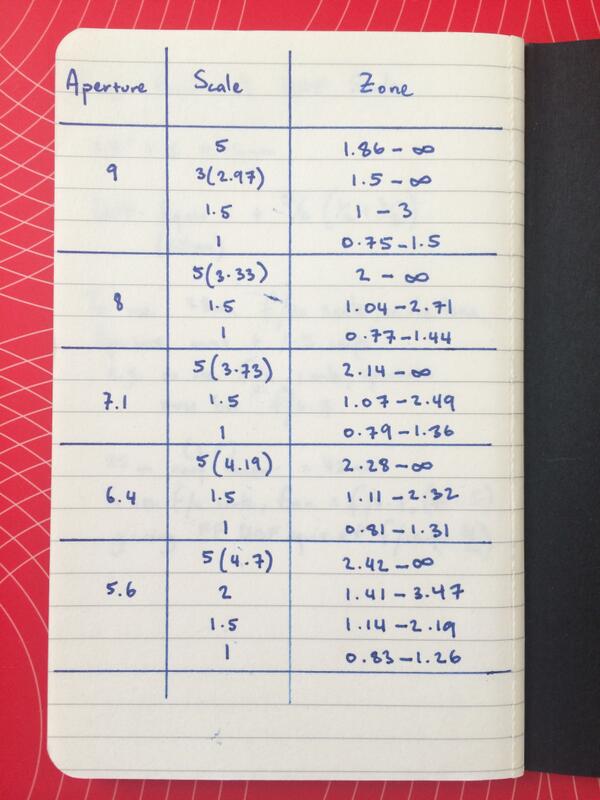 Aperture Scale Zone
5 1.86 - ∞
9 3(2.97) 1.5 - ∞
1.5 1 - 3
1 0.75 - 1.5
5(3.33) 2 - ∞
8 1.5 1.04 - 2.71
1 0.77 - 1.44
5(3.73) 2.14 - ∞
7.1 1.5 1.07 - 2.49
1 0.79 - 1.36
5(4.19) 2.28 - ∞
6.4 1.5 1.11 - 2.32
1 0.81 - 1.31
5(4.7) 2.42 - ∞
5.6 2 1.41 - 3.47
1.5 1.14 - 2.19
1 0.83 - 1.26